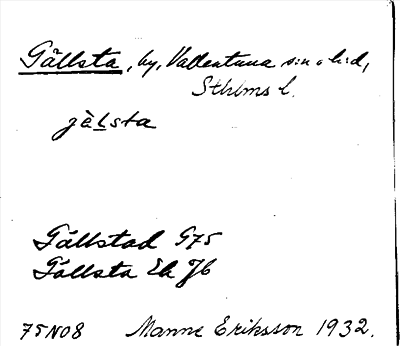 Gällsta, by, Vallentuna s:n o h:d,
Sthlms l.
jèḷsta
Gällstad G75
Gällsta Ek J6
75N08 Manne Eriksson 1932.